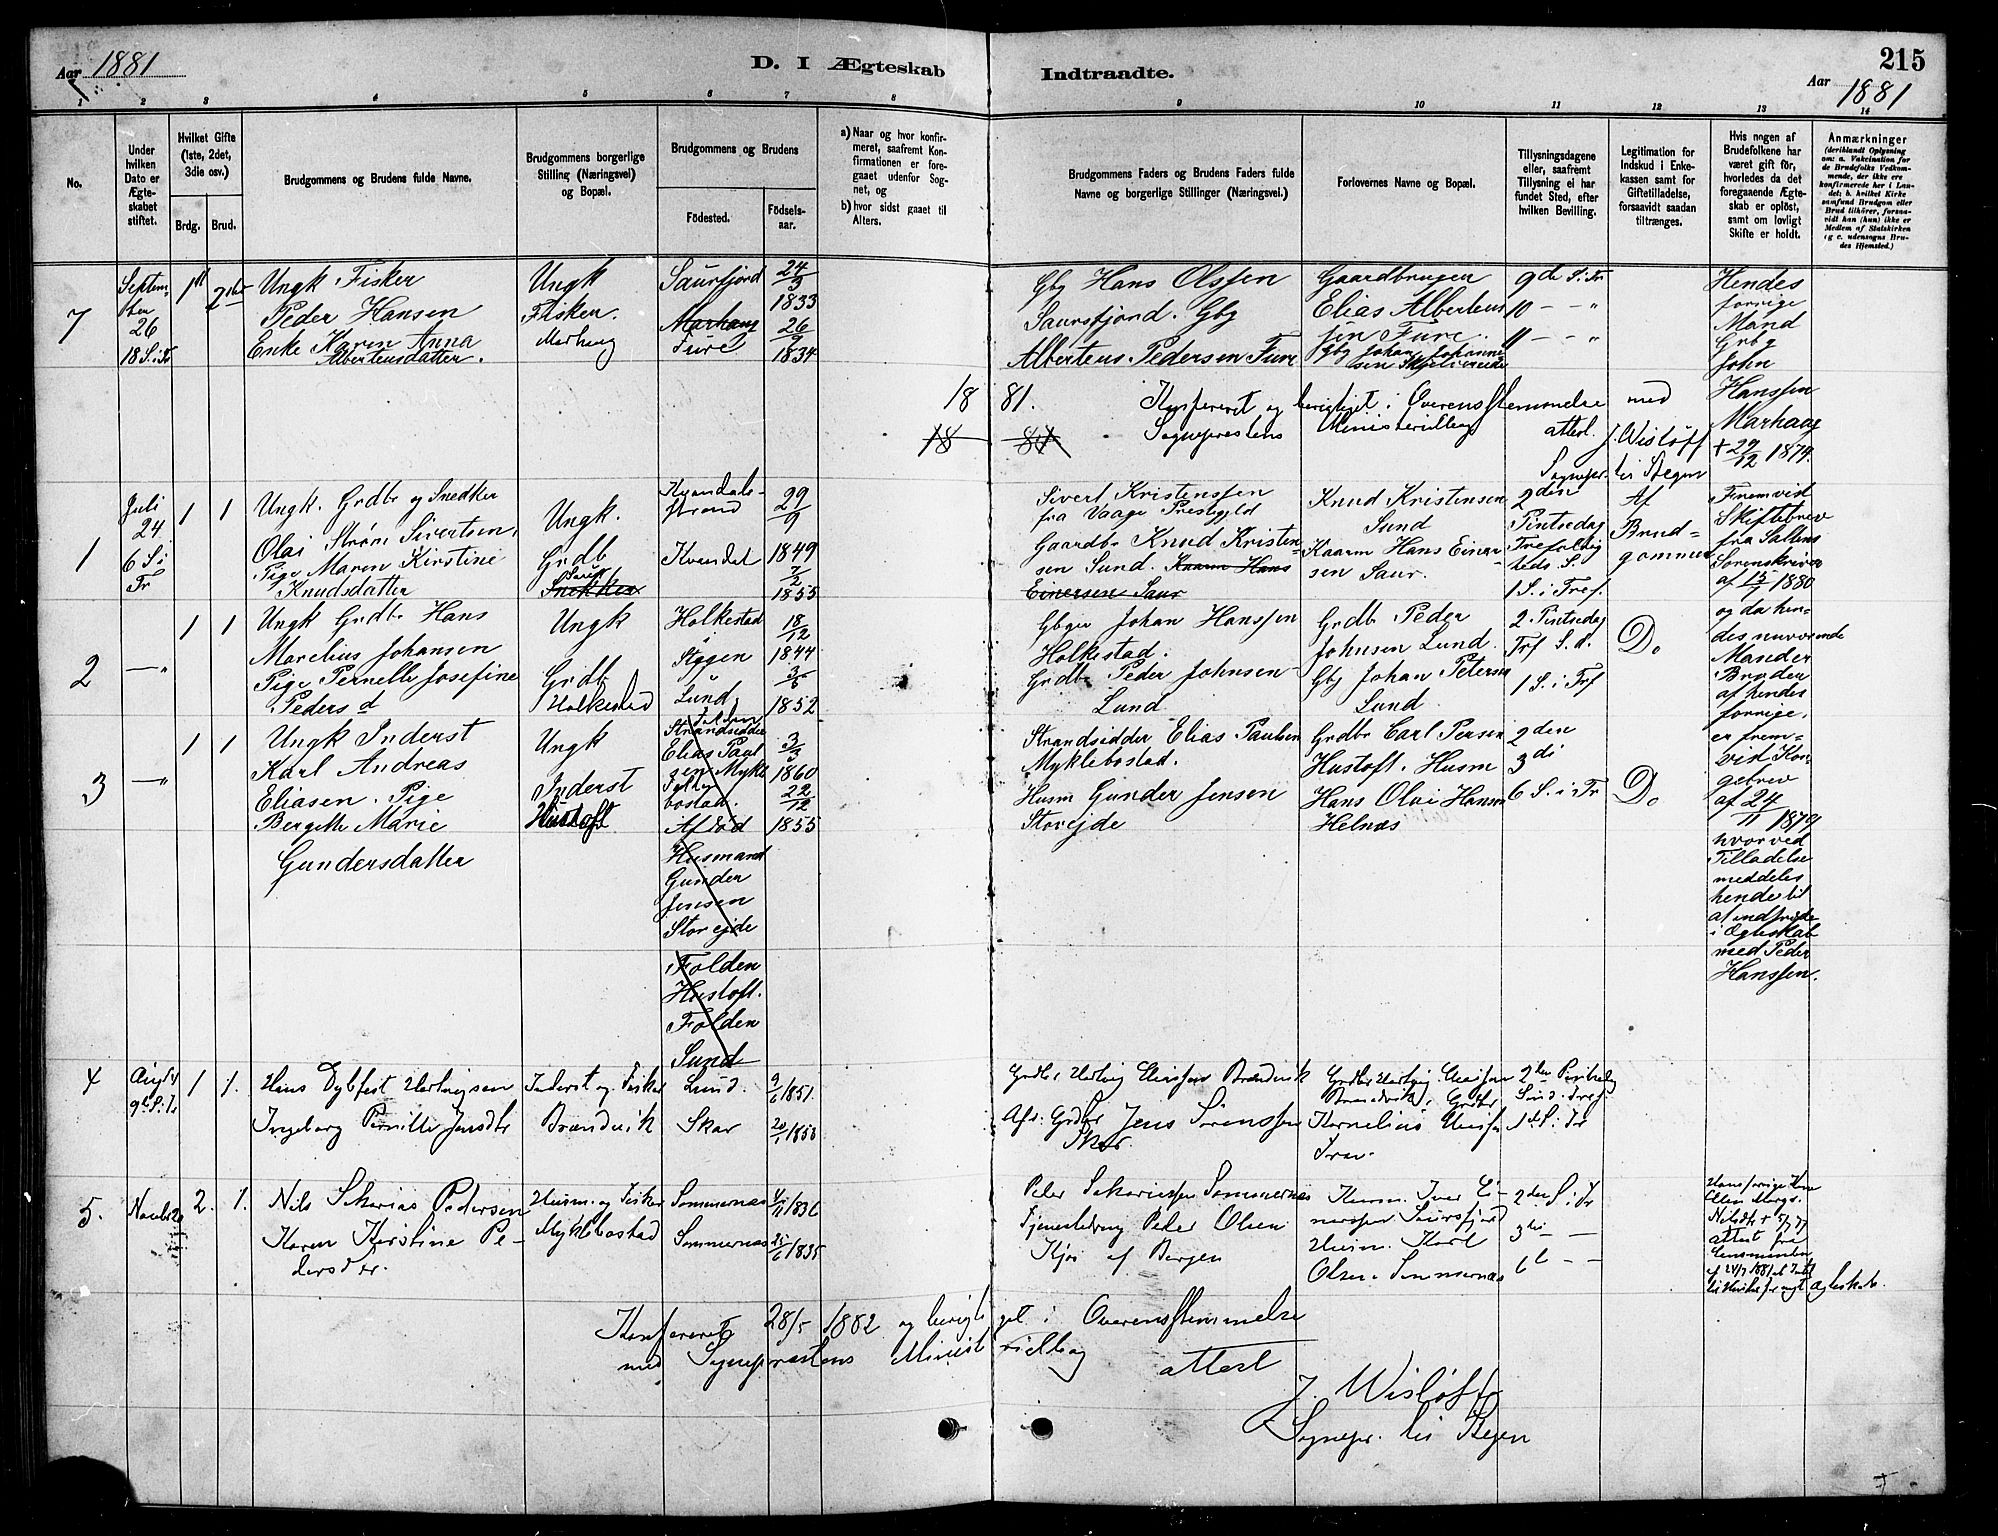 Aar 1881
D. I Ægteskab
Indtraadte.
215
Aar 1881
1 2 3 4 5 6 7 8 9 10 11 12 13 14
No.
Under hvilken Dato er Ægteskabet stiftet.
Hvilket Gifte (1ste, 2det, 3die osv.)
Brdg. Brud.
Brudgommens og Brudens fulde Navne.
Brudgommens borgerlige Stilling (Næringsvei) og Bopæl.
Brudgommens og Brudens
Fødested. Fødselsaar.
a) Naar og hvor konfirmeret, saafremt Konfirmationen er foregaaet udenfor Sognet, og
b) hvor sidst gaaet til Alters.
Brudgommens Faders og Brudens Faders fulde Navne og borgerlige Stillinger (Næringsvei.)
Forlovernes Navne og Bopæl.
Tillysningsdagene eller, saafremt Tillysning ei har fundet Sted, efter hvilken Bevilling.
Legitimation for Indskud i Enkekassen samt for Giftetilladelse, forsaavidt saadan tiltrænges.
Hvis nogen af Brudefolkene har været gift før, hvorledes da det foregaaende Ægteskab er opløst, samt om lovligt Skifte er holdt.
Anmærkninger
(deriblandt Oplysning om: a. Vakcination for de Brudefolks Vedkommende, der ikke ere konfirmerede her i Landet; b. hvilket Kirkesamfund Brudgom eller Brud tilhører, forsaavidt han (hun) ikke er Medlem af Statskirken og c. udensogns Brudes Hjemsted.)
7
September
26
18 S. i Tr
1st
2det
Ungk Fisker
Peder Hansen
Enke Karen Anna
Alberteusdatter.
Ungk
Fisker.
Marhaug
Saursfjord
Marhaug
Fure
24/3
1833
26/9
1834
Gbg Hans Olssen
Saursfjord. Gbg
Alberteus Pedersen Fure
Gaardbruger
Elias Alberteus
sen Fure.
Gbg Johan Johanne
sen
9de S. i Tr
10 — — "
11 — — "
Hendes
forrige
Mand
Grbg
John
Hanssen
Marhaug
+ 29/12 1879.
1881.
Konfereret og berigtiget i Overensstemmelse med
Sognepræstens Ministerialbog attest. J. Wisløff
Sognepr. til Stegen
18 81
1
Juli
24
6 S i
Tr
1 1
Ungk. Grdbr og Snedker
Olai Strøm Sivertsen,
Pige Maren Kirstine
Knudsdatter
Ungk.
Grdb
Saur
Snekker
Kvandals-
strand
Kvandal
29/9
1849
7/2
1855
Sivert Kristenssen
fra Vaage Prestegjeld
Gaardbr Knud Kristen-
sen Sund. Kaarm Hans
Einersen Saur
Knud Kristensen
Sund
Kaarm Hans Einar-
sen Saur.
2den
Pintsedag
Trefoldig
heds S.
1 S. i Tref.
Af
Brud-
gommen
Fremvist
Skiftebrev
fra Saltens
Sorenskriver
af 15/ 1880
og da hen-
des nuværende
Mand er
Broder
af hendes
forrige,
er frem-
vist Kon
gebrev
af 24/11 1879
hvorved
Tilladelse
meddeles
hende til
at indtræde
i Ægteskab
med Peder
Hanssen.
2
— "
1 1
Ungk Grdbr Hans
Marelius Johansen
Pige Pernelle Josefine
Peders d
Ungk
Grdb
Holkestad
Holkestad
Stggen
Lund,
Folden
18/12
1844
3/5
1852
Gbger Johan Hanssen
Holkestad.
Grdbr Peder Johnsen
Lund
Grdb Peder
Johnsen Lund.
Gbg Johan Petersen
Lund
2. Pintsedag
Trf S. d.
1 S. i Trf
Do
3
— "
1 1
Ungk Inderst
Karl Andreas
Eliasen. Pige
Bergitte Marie
Gundersdatter
Ungk
Inderst
Hustoft
Strandsidder
Elias Paul
sen Mykle
bostad.
Af død
Husmand
Gunder
Jensen
Storejde
Folden
Hustoft.
Folden
Sund
3/3
1860
22/12
1855
Strandsidder Elias Paulsen
Myklebostad.
Husm Gunder Jensen
Storejde
Grdbr Carl Persen
Hustoft. Husm
Hans Olai Hansen
Helnæs
2den
3di
6 S. i Tr
Do
4
Aug 14
9de S. i Tr
1 1.
Hans Dybfest Hartvigsen
Ingeborg Pernille Jensdtr
Inderst og Fisker
Brændvik
Lund.
Skar
9/6 1851.
20/1 1853
Grdbr. Hartvig Brændvik
Afd. Grdbr Jens Sørenssen
Skar.
Grdbr Hartvig
Brændvik, Grdbr
Kornelius
2den Pintsedag
Sønd. Tref
1ste S. i Tr
5.
Novbr 20
2. 1.
Nils Sakarias Pedersen
Karen Kirstine Pe-
dersdtr.
Husm. og Fisker
Myklebostad
Sommernæs
Sommernæs
1836
25/6 1835
Peder Sakariassen Sommernæs
Tjenestedreng Peder Olsen
Kjos af Bergen
Husm. Iver Ei-
nerssen Saursfjord
Husm. Karl
Olsen Sommernæs
2den S. i Tr
3die — —
6te — —
Hans forrige Kone
Ellen Margr.
Nilsdtr + 5/7 77
attest fra
Lensmanden
af 24/9 1881
Ægteskab.
Konfereret 28/5 1882 og berigtiget i Overensstemmelse
med Sognepræstens Ministerialbog
attest
J. Wisløff
Sognepr. til Stegen